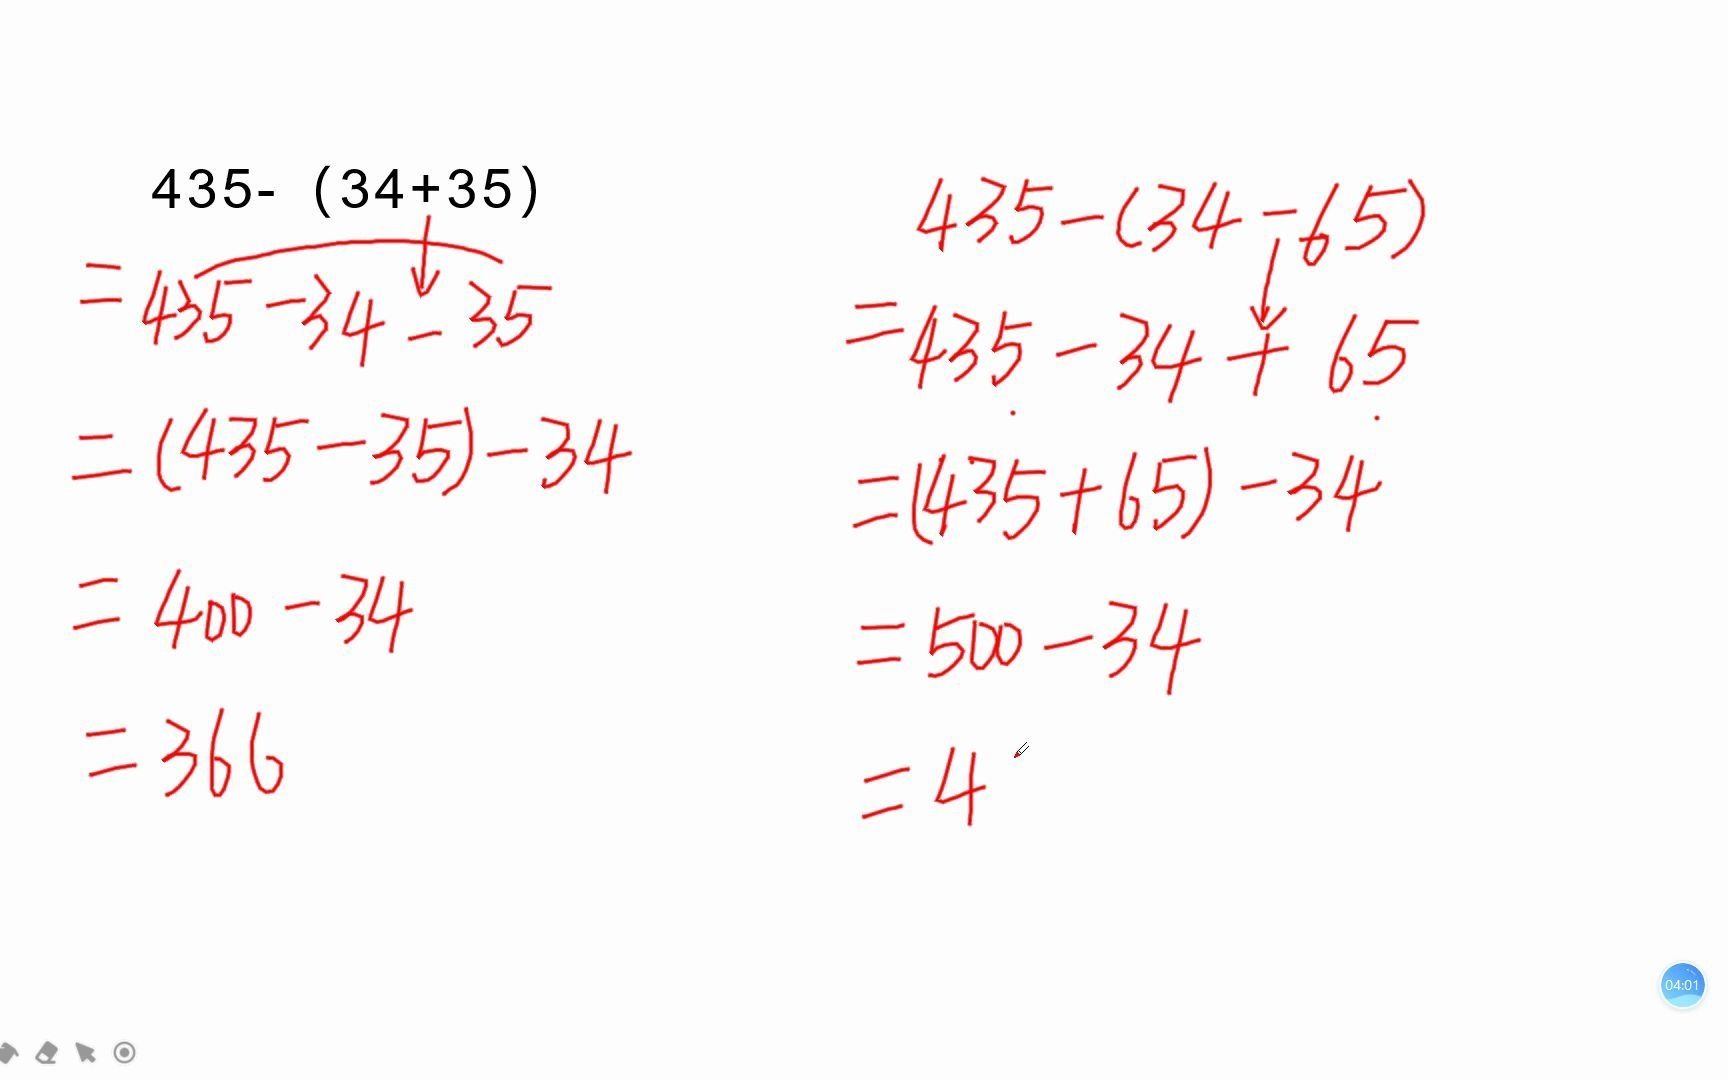 435-（34+35）
=435-34-35
=(435-35)-34
=400-34
=366
435-(34-65)
=435-34+65
=(435+65)-34
=500-34
=4
04:01